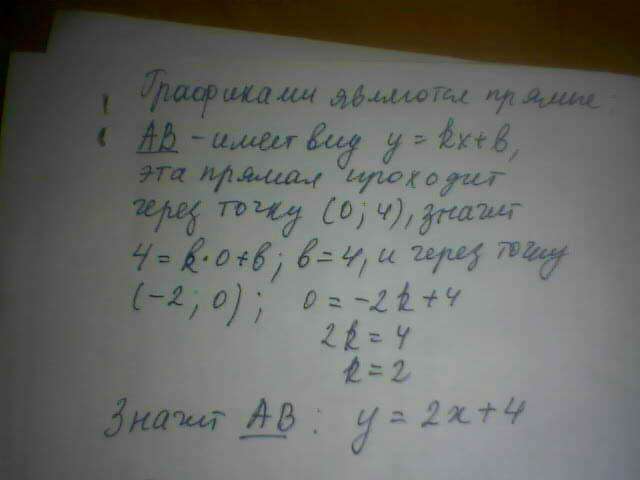 Графиками являются прямые:
АВ - имеет вид y = kx+b,
эта прямая проходит
через точку (0; 4), значит
4 = k·0+b; b=4, и через точку
(-2; 0); 0 = -2k+4
2k = 4
k = 2
Значит АВ: y = 2x+4